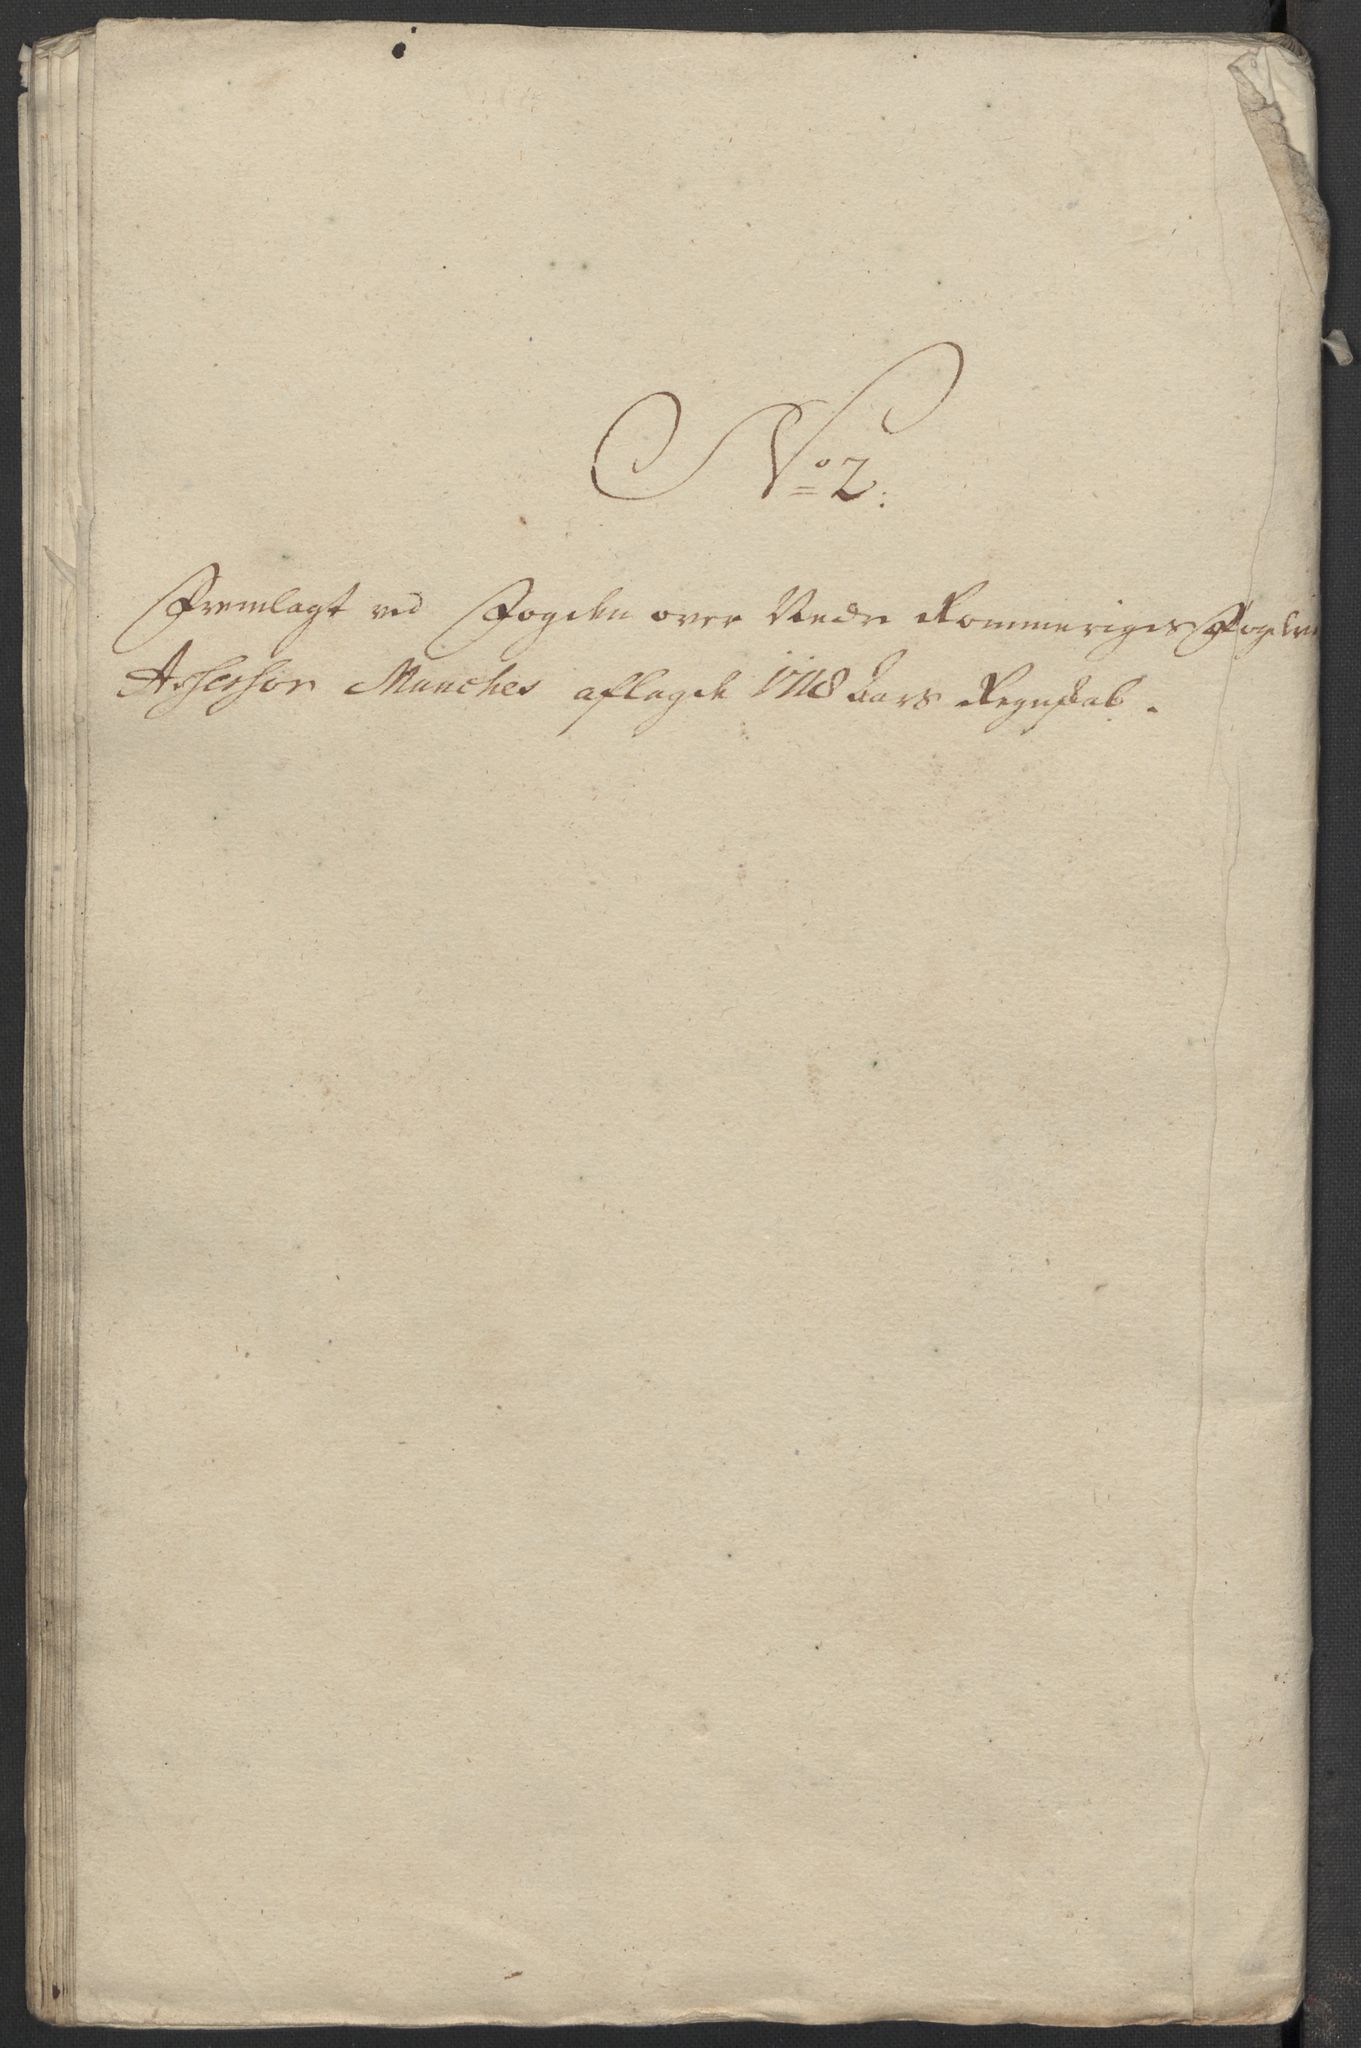 No 2:
Fremlagt ved Fogden over Nedre Rommeriges Fogderi
Assessor Munches aflagde 1718 Aars Regnskab.